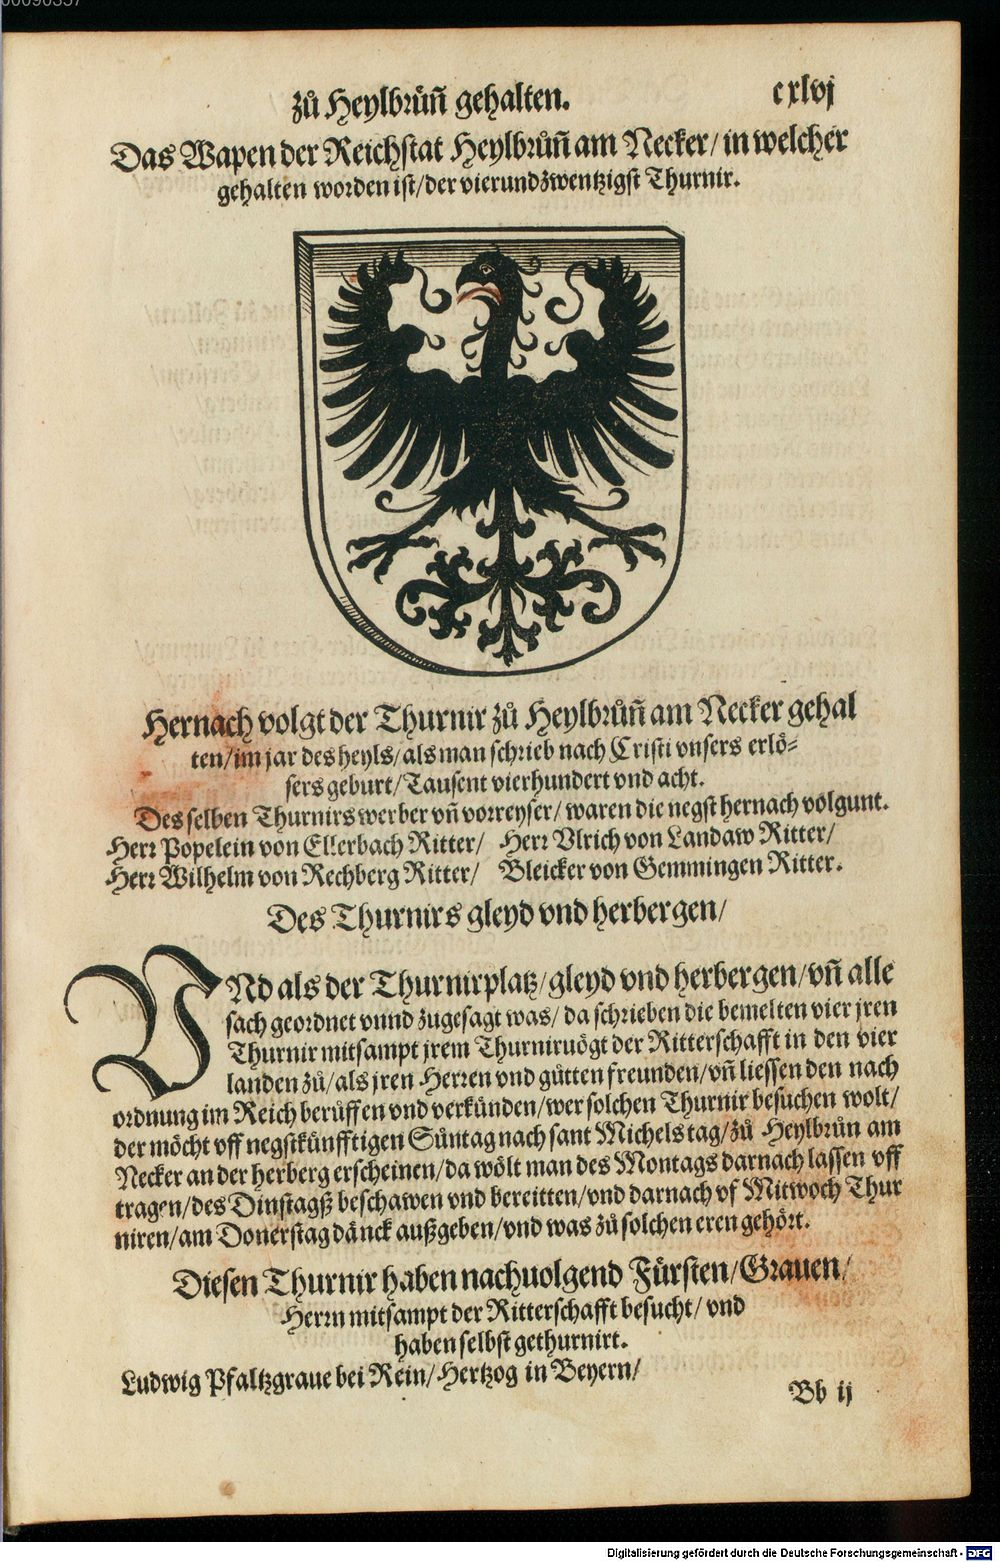 00090357
zů Heylbrüñ gehalten. cxlvj
Das Wapen der Reichstat Heylbrůñ am Necker/ in welcher
gehalten worden ist/ der vierundzwentzigst Thurnir.
Hernach volgt der Thurnir zů Heylbrůñ am Necker gehal
ten/ im jar des heyls/ als man schrieb nach Cristi vnsers erlö⸗
sers geburt/ Tausent vierhundert vnd acht.
Des selben Thurnirs werber vñ vorreyser/ waren die negst hernach volgunt.
Herr Popelein von Ellerbach Ritter/ Herr Vlrich von Landaw Ritter/
Herr Wilhelm von Rechberg Ritter/ Bleicker von Gemmingen Ritter.
Des Thurnirs gleyd vnd herbergen/
VNd als der Thurnirplatz/ gleyd vnd herbergen/ vñ alle
sach geordnet vnnd zugesagt was/ da schrieben die bemelten vier jren
Thurnir mitsampt jrem Thurniruögt der Ritterschafft in den vier
landen zů/ als jren Herren vnd gůtten freunden/ vñ liessen den nach
ordnung im Reich berůffen vnd verkünden/ wer solchen Thurnir besuchen wolt/
der möcht vff negstkünfftigen Sůntag nach sant Michels tag/ zů Heylbrün am
Necker an der herberg erscheinen/ da wölt man des Montags darnach lassen vff
tragen/ des Dinstagß beschawen vnd bereitten/ vnd darnach vf Mitwoch Thur
niren/ am Donerstag dänck außgeben/ vnd was zů solchen eren gehört.
Diesen Thurnir haben nachuolgend Fürsten/ Grauen/
Herrn mitsampt der Ritterschafft besucht/ vnd
haben selbst gethurnirt.
Ludwig Pfaltzgraue bei Rein/ Hertzog in Beyern/
Bb ij
Digitalisierung gefördert durch die Deutsche Forschungsgemeinschaft - DFG